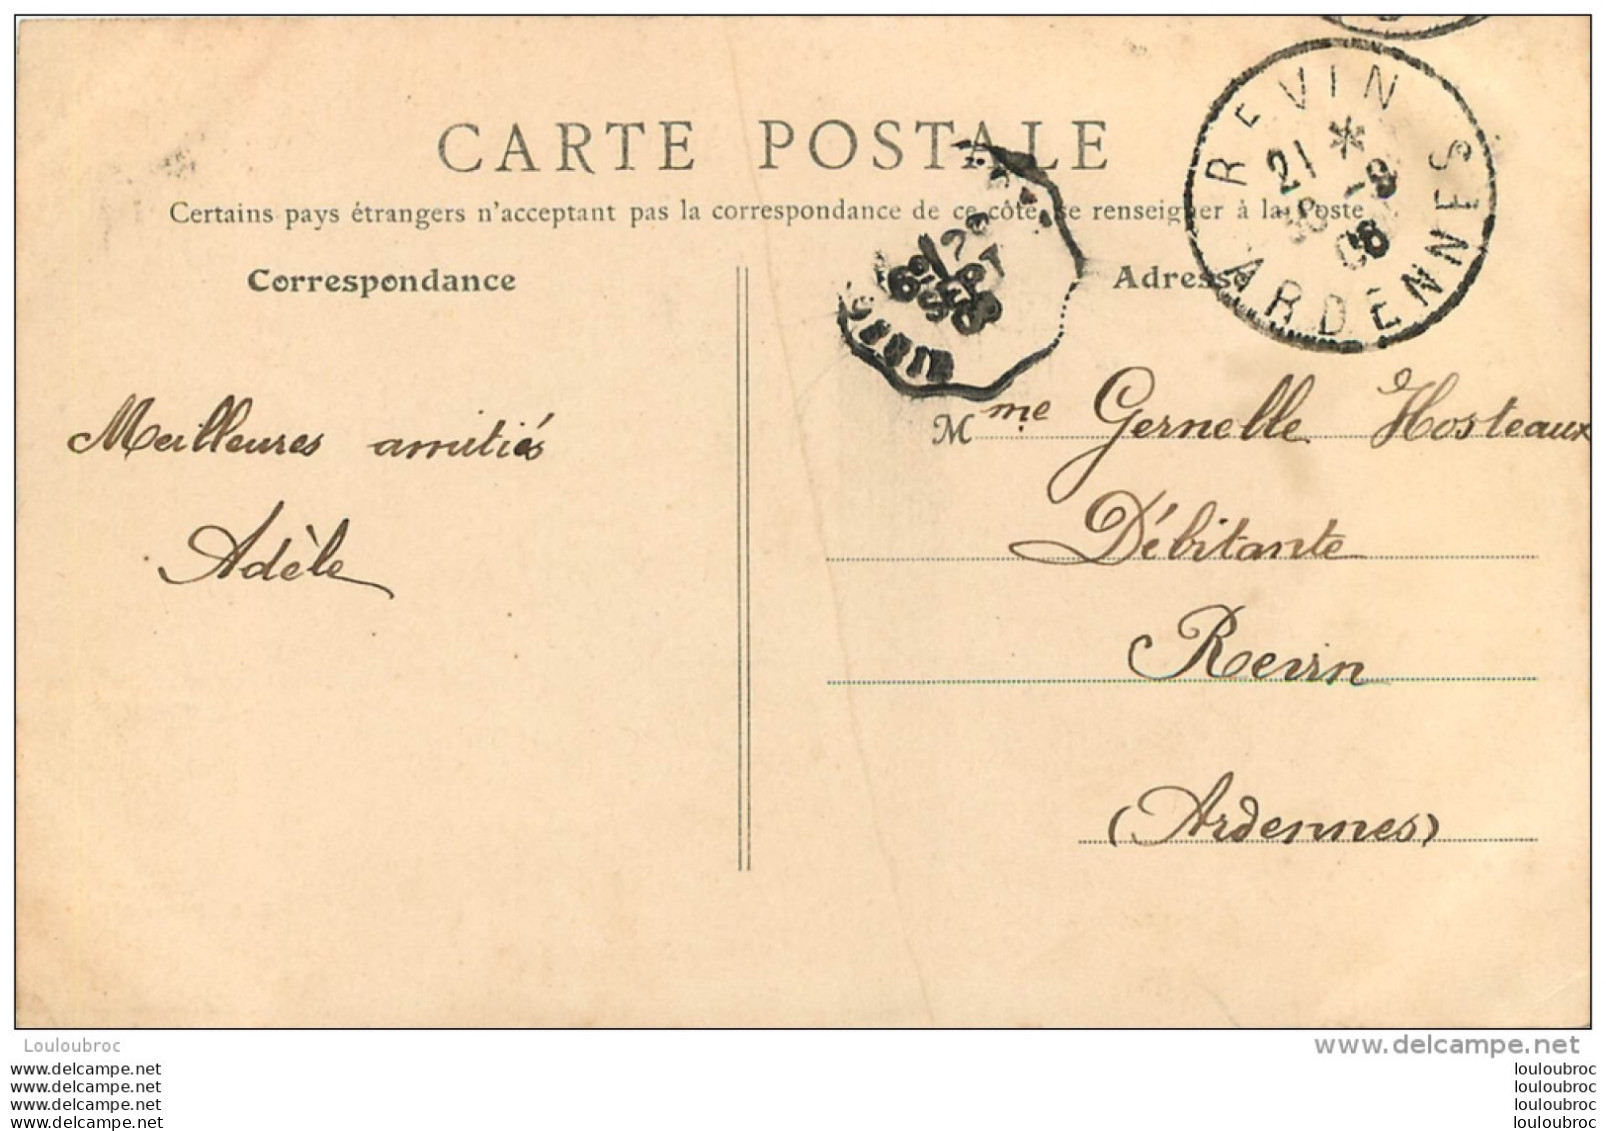 CARTE POSTALE
Certains pays étrangers n'acceptant pas la correspondance de ce côté, se renseigner à la Poste
Correspondance
Adresse
REVIN
21 *
30 -9
08
ARDENNES
Meilleures amitiés
Adèle
Mme Gernelle Hosteaux
Débitante
Revin
(Ardennes)
Louloubroc
www.delcampe.net
www.delcampe.net
www.delcampe.net
www.delcampe.net
www.delcampe.net
louloubroc
louloubroc
louloubroc
louloubroc